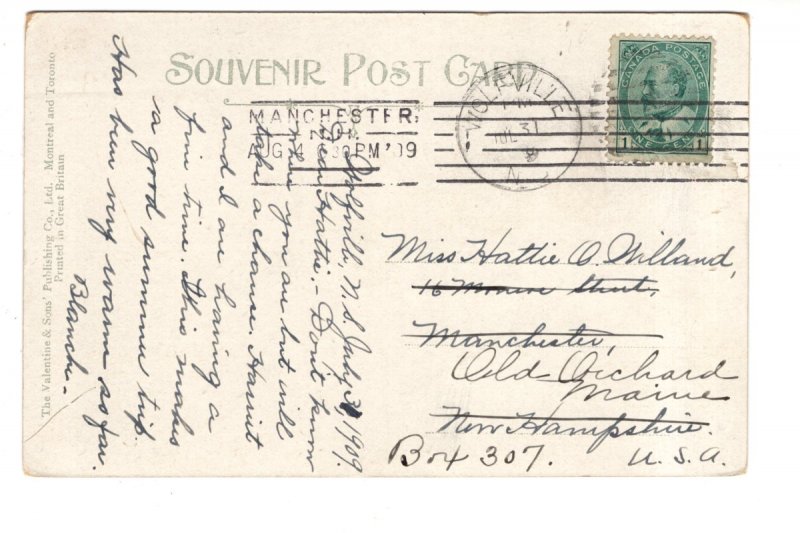 SOUVENIR POST CARD
CANADA POSTAGE
1 ONE CENT 1
WOLFVILLE
PM
JUL 31
9
N.
MANCHESTER,
N.H.
AUG 4 630PM '09
The Valentine & Sons' Publishing Co., Ltd. Montreal and Toronto
Printed in Great Britain
Wolfville, N. S. July 31, 1909.
Dear Hattie, - Don't know
where you are but will
take a chance. Harriet
and I are having a
fine time. This makes
a good summer trip.
Has been very warm so far.
Blanche -
Miss Hattie O. Willand,
16 Monroe Street,
Manchester,
Old Orchard
Maine
New Hampshire.
Box 307. U. S. A.